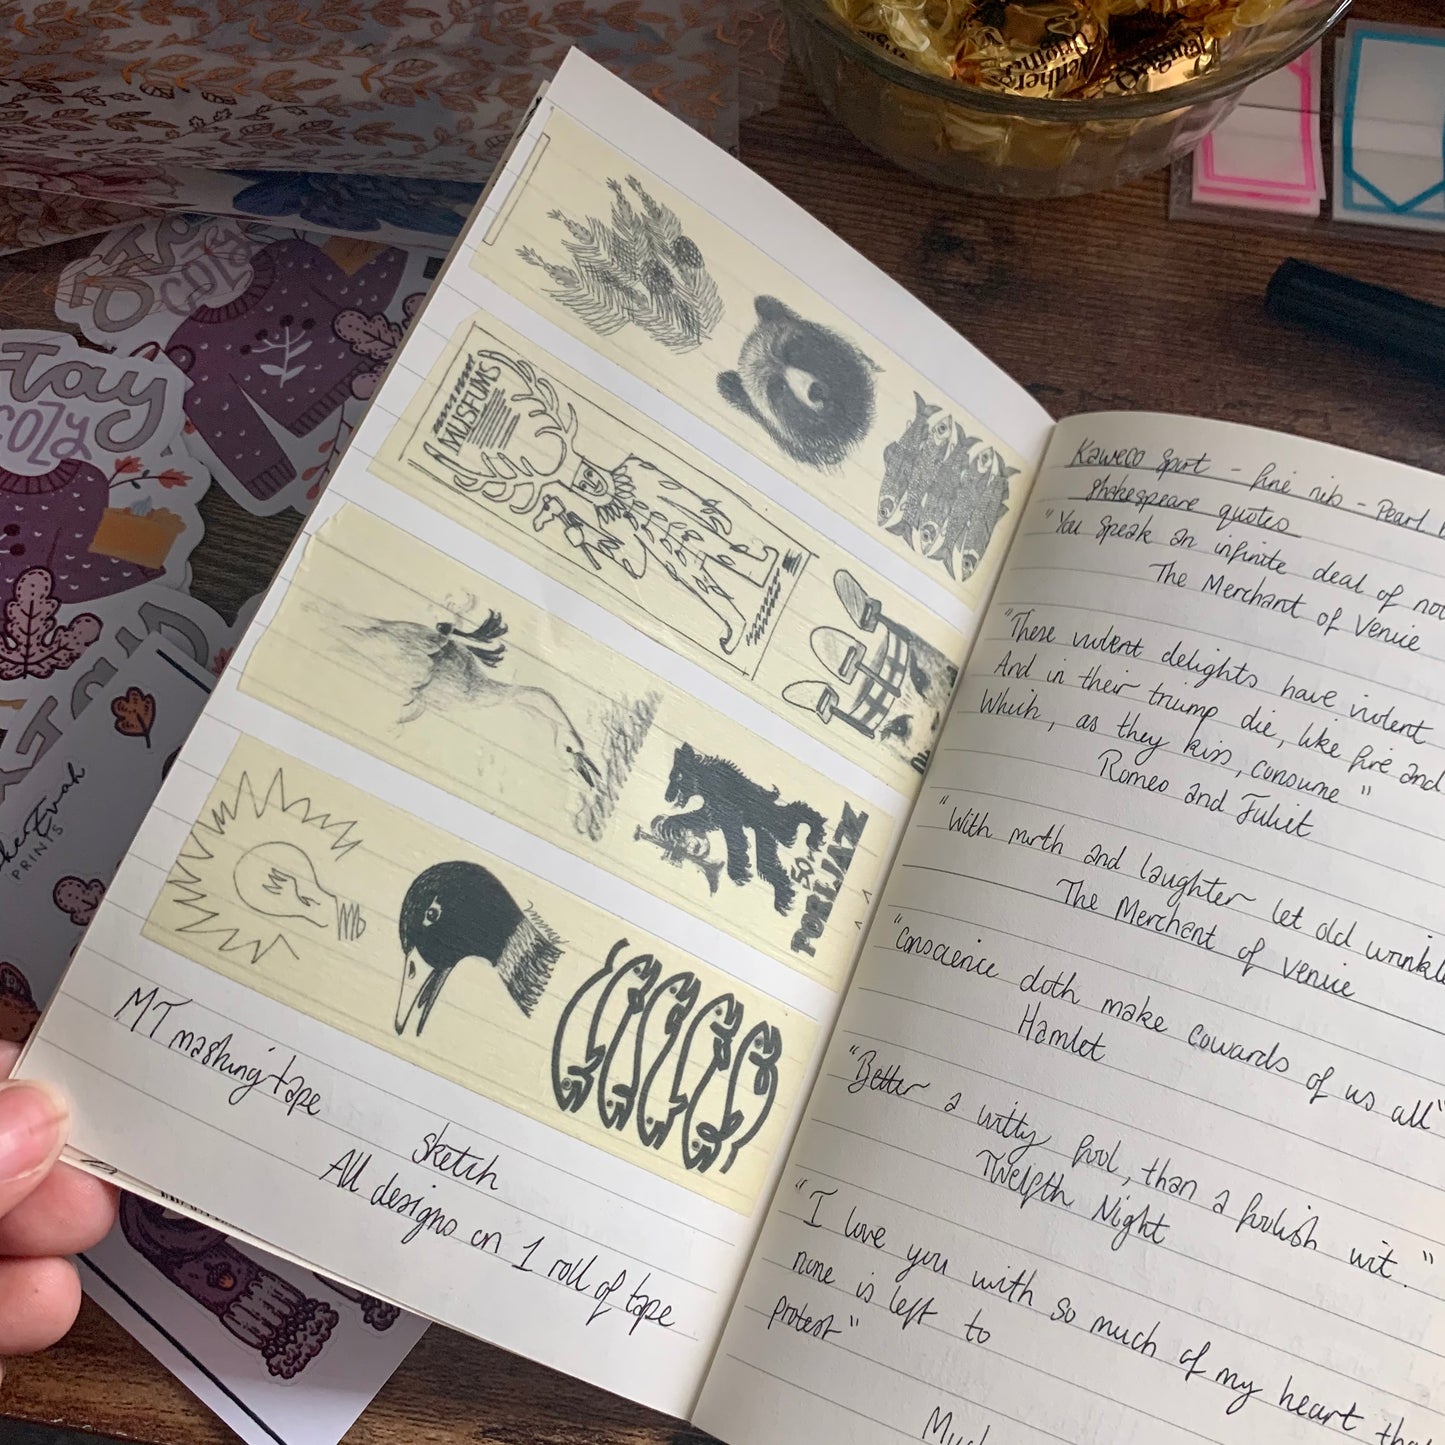 Werther's
Original
Stay
COZY
Stay
COZY
PRINTS
MUSEUMS
50
PORIJAZZ
MT mashing tape
sketch
All designs on 1 roll of tape
Kaweco Sport - fine nib - Pearl
Shakespeare quotes
"You speak an infinite deal of
The Merchant of Venice
"These violent delights have violent
And in their triump die, like fire and
Which, as they kiss, consume"
Romeo and Juliet
"With mirth and laughter let old
The Merchant of Venice
"Conscience doth make cowards of us all"
Hamlet
"Better a witty fool, than a foolish wit."
Twelfth Night
"I love you with so much of my heart
none is left to
protest"